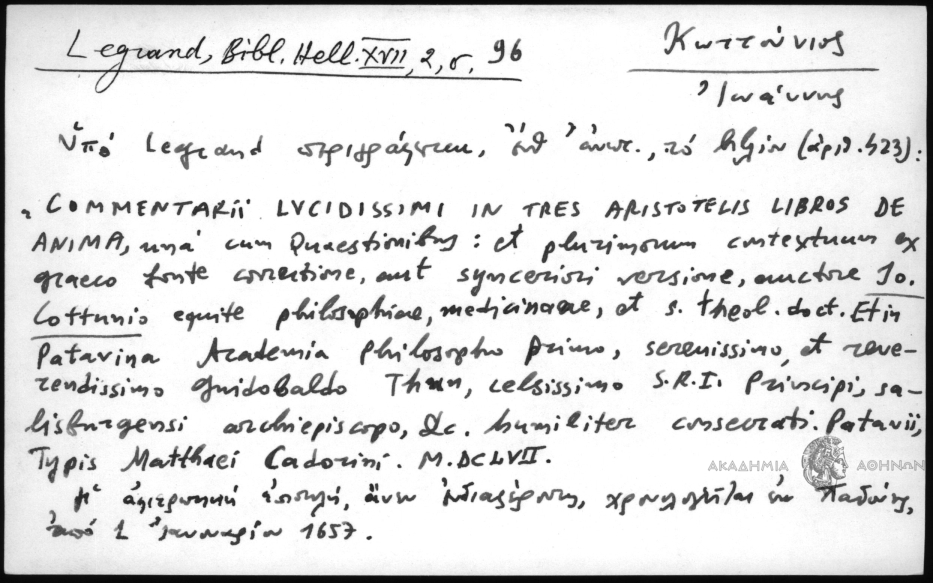 Legrand, Bibl. Hell. XVII, 2, σ. 96
Κωττούνιος
Ἰωάννης
Ὑπό Legrand περιγράφεται, ἔνθ' ἀνωτ., τό βιβλίον (ἀριθ. 423):
„COMMENTARII LVCIDISSIMI IN TRES ARISTOTELIS LIBROS DE
ANIMA, unà cum Quaestionibus: et plurimorum contextuum ex
graeco fonte correctione, aut synceriori versione, auctore Jo.
Cottunio equite philosophiae, medicinaeae, et s. theol. doct. Et in
Patavina Academia philosopho primo, serenissimo, et reve-
rendissimo Guidobaldo Thun, celsissimo S.R.I. Principi, sa-
lisburgensi archiepiscopo, &c. humiliter consecrati. Patavii,
Typis Matthaei Cadorini. M.DCLVII.
ΑΚΑΔΗΜΙΑ ΑΘΗΝΩΝ
μ' ἀφιερωτική ἐπιστολή, ἄνευ ἐνδιαφέροντος, χρονολογεῖται ἐν Παδούῃ,
ἀπό 1 Ἰανουαρίου 1657.